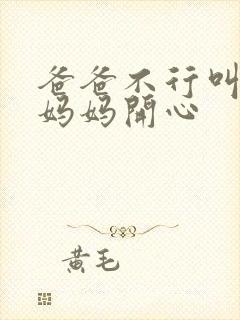 爸爸不行叫
妈妈開心
黄毛